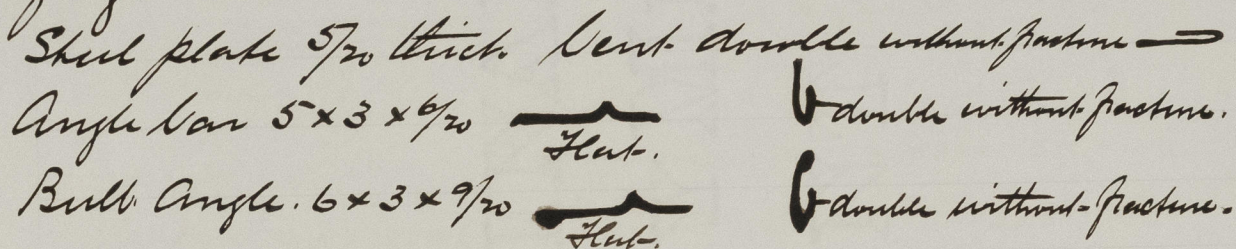 Steel plate 5/20 thick bent double without fracture
Angle bar 5 x 3 x 6/20 Flat. double without fracture.
Bulb Angle. 6 x 3 x 9/20 Flat. double without fracture.